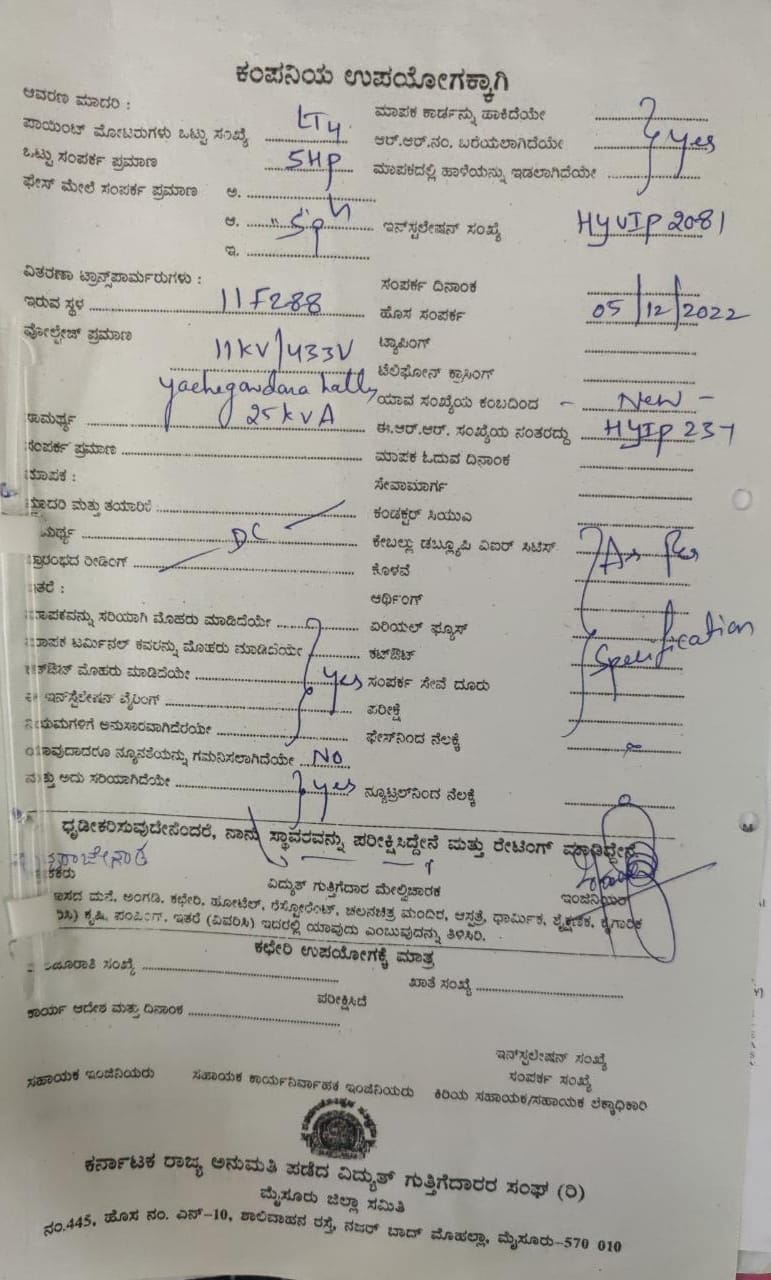 ಕಂಪನಿಯ ಉಪಯೋಗಕ್ಕಾಗಿ
ಆವರಣ ಮಾದರಿ : ಮಾಪಕ ಕಾರ್ಡನ್ನು ಹಾಕಿದೆಯೇ
ಪಾಯಿಂಟ್ ಮೋಟರುಗಳು ಒಟ್ಟು ಸಂಖ್ಯೆ LT4 ಆರ್.ಆರ್.ನಂ. ಬರೆಯಲಾಗಿದೆಯೇ yes
ಒಟ್ಟು ಸಂಪರ್ಕ ಪ್ರಮಾಣ 5HP ಮಾಪಕದಲ್ಲಿ ಹಾಳೆಯನ್ನು ಇಡಲಾಗಿದೆಯೇ
ಫೇಸ್ ಮೇಲೆ ಸಂಪರ್ಕ ಪ್ರಮಾಣ ಅ.
ಆ. ಇನ್‌ಸ್ಟಲೇಷನ್ ಸಂಖ್ಯೆ HYVIP 2081
ಇ.
ವಿತರಣಾ ಟ್ರಾನ್ಸ್‌ಪಾರ್ಮರುಗಳು : ಸಂಪರ್ಕ ದಿನಾಂಕ
ಇರುವ ಸ್ಥಳ 11F288 ಹೊಸ ಸಂಪರ್ಕ 05/12/2022
ವೋಲ್ಟೇಜ್ ಪ್ರಮಾಣ 11KV/433V ಟ್ಯಾಪಿಂಗ್
ಟೆಲಿಫೋನ್ ಕ್ರಾಸಿಂಗ್
yachegowdana hally ಯಾವ ಸಂಖ್ಯೆಯ ಕಂಬದಿಂದ - New -
ಸಾಮರ್ಥ್ಯ 25KVA ಈ.ಆರ್.ಆರ್. ಸಂಖ್ಯೆಯ ನಂತರದ್ದು HYIP 237
ಸಂಪರ್ಕ ಪ್ರಮಾಣ ಮಾಪಕ ಓದುವ ದಿನಾಂಕ
ಮಾಪಕ : ಸೇವಾಮಾರ್ಗ
ಮಾದರಿ ಮತ್ತು ತಯಾರಿಕೆ ಕಂಡಕ್ಟರ್ ಸಿಯುಎ
DC ಕೇಬಲ್ಲು ಡಬ್ಲ್ಯೂಪಿ ವಿಐರ್ ಸಿಟಿಸ್ As Per
ಪ್ರಾರಂಭದ ರೀಡಿಂಗ್ ಕೊಳವೆ
ಇತರೆ : ಆರ್ಥಿಂಗ್
ಮಾಪಕವನ್ನು ಸರಿಯಾಗಿ ಮೊಹರು ಮಾಡಿದೆಯೇ ಏರಿಯಲ್ ಫ್ಯೂಸ್ Specification
ಮಾಪಕ ಟರ್ಮಿನಲ್ ಕವರನ್ನು ಮೊಹರು ಮಾಡಿದೆಯೇ ಕಟ್‌ಔಟ್
ಕಟ್‌ಔಟ್ ಮೊಹರು ಮಾಡಿದೆಯೇ yes ಸಂಪರ್ಕ ಸೇವೆ ದೂರು
ಇನ್‌ಸ್ಟಲೇಷನ್ ವೈರಿಂಗ್ ಪರೀಕ್ಷೆ
ನಿಯಮಗಳಿಗೆ ಅನುಸಾರವಾಗಿದೆಯೇ ಫೇಸ್‌ನಿಂದ ನೆಲಕ್ಕೆ
ಯಾವುದಾದರೂ ನ್ಯೂನತೆಯನ್ನು ಗಮನಿಸಲಾಗಿದೆಯೇ No
ಮತ್ತು ಅದು ಸರಿಯಾಗಿದೆಯೇ yes ನ್ಯೂಟ್ರಲ್‌ನಿಂದ ನೆಲಕ್ಕೆ
ಧೃಡೀಕರಿಸುವುದೇನೆಂದರೆ, ನಾನು ಸ್ಥಾವರವನ್ನು ಪರೀಕ್ಷಿಸಿದ್ದೇನೆ ಮತ್ತು ರೇಟಿಂಗ್ ಮಾಡಿದ್ದೇನೆ
ವಿದ್ಯುತ್ ಗುತ್ತಿಗೆದಾರ ಮೇಲ್ವಿಚಾರಕ ಇಂಜಿನಿಯರ್
ವಾಸದ ಮನೆ, ಅಂಗಡಿ, ಕಛೇರಿ, ಹೋಟೆಲ್, ರೆಸ್ಟೋರೆಂಟ್, ಚಲನಚಿತ್ರ ಮಂದಿರ, ಆಸ್ಪತ್ರೆ, ಧಾರ್ಮಿಕ, ಶೈಕ್ಷಣಿಕ, ಕೈಗಾರಿಕ
ಕೃಷಿ, ಪಂಪಿಂಗ್, ಇತರೆ (ವಿವರಿಸಿ) ಇದರಲ್ಲಿ ಯಾವುದು ಎಂಬುವುದನ್ನು ತಿಳಿಸಿರಿ.
ಕಛೇರಿ ಉಪಯೋಗಕ್ಕೆ ಮಾತ್ರ
ಸಂಖ್ಯೆ ಖಾತೆ ಸಂಖ್ಯೆ
ಪರೀಕ್ಷಿಸಿದೆ
ಕಾರ್ಯ ಆದೇಶ ಮತ್ತು ದಿನಾಂಕ
ಇನ್‌ಸ್ಟಲೇಷನ್ ಸಂಖ್ಯೆ
ಸಂಪರ್ಕ ಸಂಖ್ಯೆ
ಸಹಾಯಕ ಇಂಜಿನಿಯರು ಸಹಾಯಕ ಕಾರ್ಯನಿರ್ವಾಹಕ ಇಂಜಿನಿಯರು ಕಿರಿಯ ಸಹಾಯಕ/ಸಹಾಯಕ ಲೆಕ್ಕಾಧಿಕಾರಿ
ಕರ್ನಾಟಕ ರಾಜ್ಯ ಅನುಮತಿ ಪಡೆದ ವಿದ್ಯುತ್ ಗುತ್ತಿಗೆದಾರರ ಸಂಘ (ರಿ)
ಮೈಸೂರು ಜಿಲ್ಲಾ ಸಮಿತಿ
ನಂ.445, ಹೊಸ ನಂ. ಎನ್-10, ಶಾಲಿವಾಹನ ರಸ್ತೆ, ನಜರ್ ಬಾದ್ ಮೊಹಲ್ಲಾ, ಮೈಸೂರು-570 010